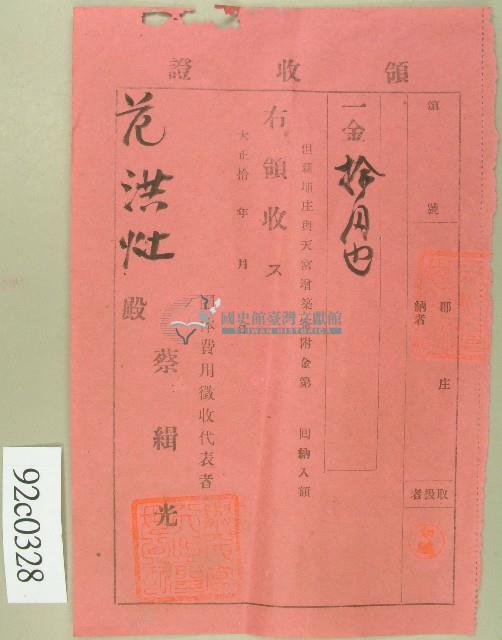 領收證
第 號
郡 庄
納者
取扱者
一金拾円也
但新埔庄與天宮增築寄附金第 回納入額
右領收ス
大正拾 年 月
費用徵收代表者
蔡緝光
范洪灶殿
國史館臺灣文獻館
TAIWAN HISTORICA
92c0328